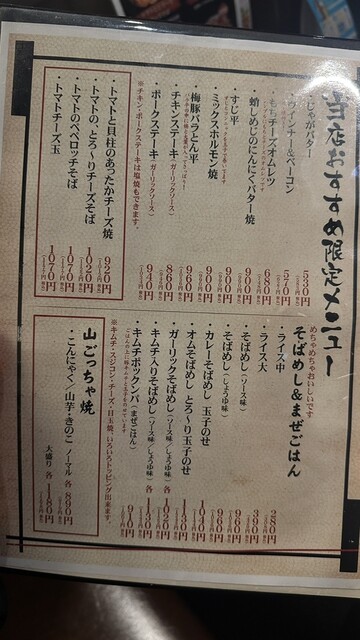 当店おすすめ限定メニュー
・じゃがバター 530円
・ウィンナー&ベーコン 570円
・もちチーズオムレツ 680円
・蛸しめじのにんにくバター焼 900円
・すじ平 900円
・ミックスホルモン焼 900円
・梅豚バラとん平 960円
・チキンステーキ(ガーリックソース) 860円
・ポークステーキ(ガーリックソース) 940円
※チキン・ポークステーキは塩焼もできます。
・トマトと貝柱のあったかチーズ焼 920円
・トマトの、とろ〜りチーズそば 1020円
・トマトのペペロッチそば 1070円
・トマトチーズ玉 1070円
めちゃめちゃおいしいです
そばめし&まぜごはん
・ライス中 280円
・ライス大 390円
・そばめし(ソース味) 960円
・そばめし(しょうゆ味) 960円
・カレーそばめし 玉子のせ 1040円
・オムそばめし とろ〜り玉子のせ 1180円
・ガーリックそばめし(ソース味/しょうゆ味) 各 1020円
・キムチ入りそばめし(ソース味/しょうゆ味) 各 1130円
・キムチポックンパ(まぜごはん) 910円
※キムチ・スジコン・チーズ・目玉焼、いろいろトッピング出来ます。
山ごっちゃ焼
・こんにゃく/山芋・きのこ ノーマル 各 890円
大盛り 各 1180円